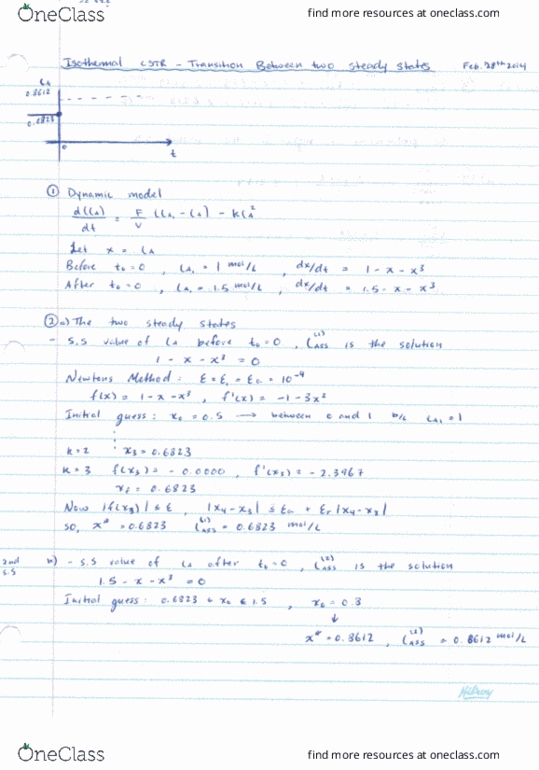 OneClass
find more resources at oneclass.com
Isothermal CSTR - Transition Between two steady states Feb. 28th 2014
CA
0.8612
0.6823
0
t
① Dynamic model
d(CA)/dt = F/V (CAi - CA) - kCA²
Let x = CA
Before t₀ = 0, CAi = 1 mol/L, dx/dt = 1 - x - x³
After t₀ = 0, CAi = 1.5 mol/L, dx/dt = 1.5 - x - x³
② a) The two steady states
- S.S value of CA before t₀ = 0, CAss⁽¹⁾ is the solution
1 - x - x³ = 0
Newtons Method: ε = εr = εa = 10⁻⁴
f(x) = 1 - x - x³, f'(x) = -1 - 3x²
Initial guess: x₀ = 0.5 → between 0 and 1 b/c CAi = 1
⋮
k = 2 x₃ = 0.6823
k = 3 f(x₃) = -0.0000, f'(x₃) = -2.3967
x₄ = 0.6823
Now |f(x₃)| ≤ ε, |x₄ - x₃| ≤ εa + εr |x₄ - x₃|
so, x* = 0.6823 CAss⁽¹⁾ = 0.6823 mol/L
2nd
s.s
- S.S value of CA after t₀ = 0, CAss⁽²⁾ is the solution
1.5 - x - x³ = 0
Initial guess: 0.6823 < x₀ < 1.5, x₀ = 0.8
↓
x* = 0.8612, CAss⁽²⁾ = 0.8612 mol/L
Hilroy
OneClass
find more resources at oneclass.com